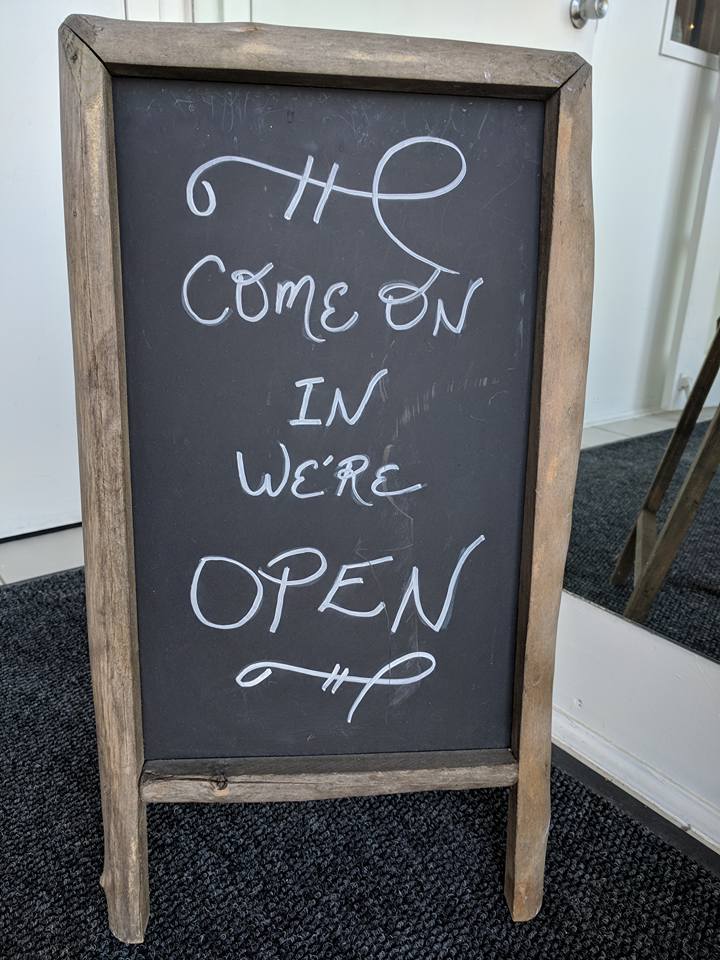 COME ON
IN
WE'RE
OPEN